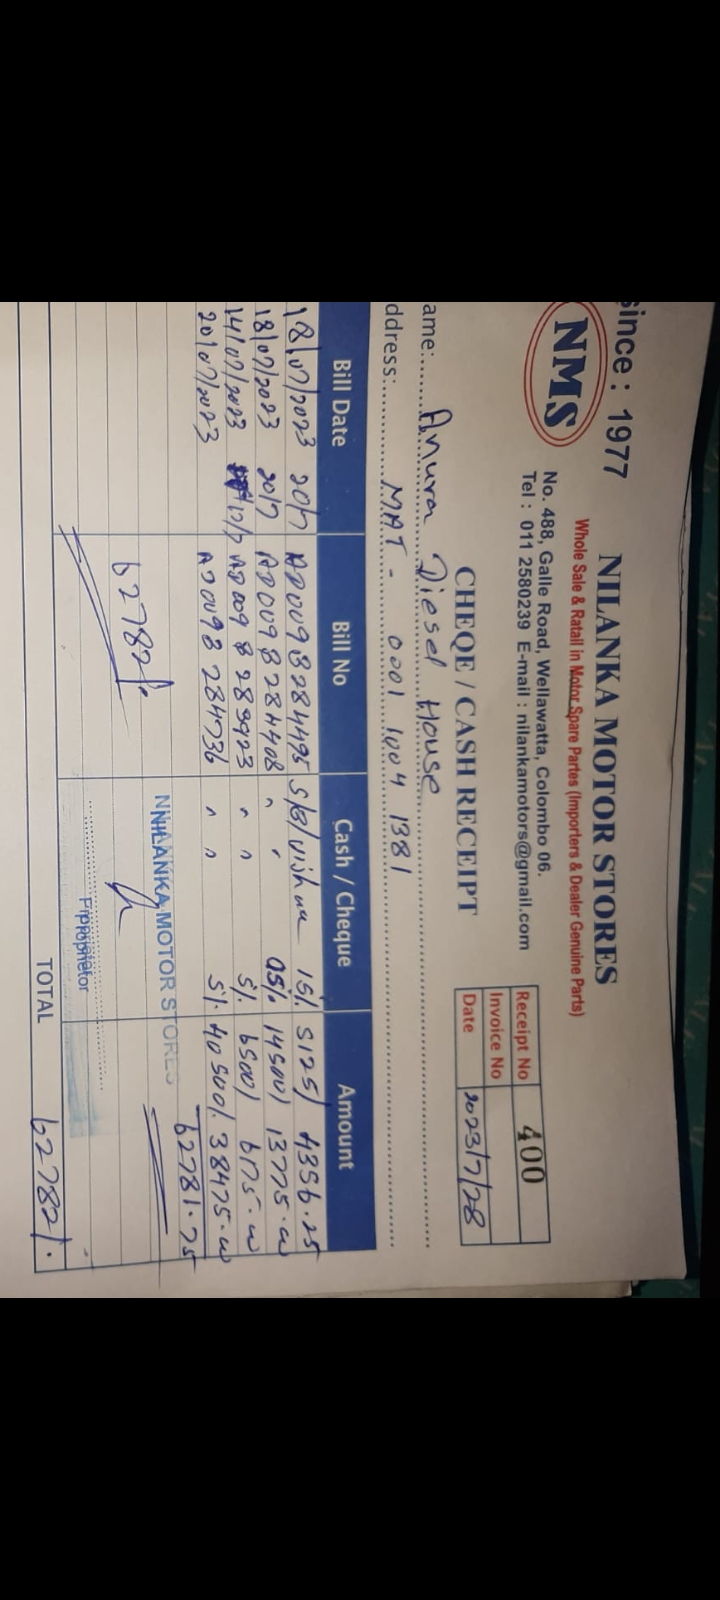 Since : 1977
NILANKA MOTOR STORES
NMS
Whole Sale & Ratall in Motor Spare Partes (Importers & Dealer Genuine Parts)
No. 488, Galle Road, Wellawatta, Colombo 06.
Tel : 011 2580239 E-mail : nilankamotors@gmail.com
CHEQE / CASH RECEIPT
Receipt No 400
Invoice No
Date 2023/7/28
ame: Anura Diesel House
ddress: MAT - 0001 1004 1381
Bill Date Bill No Cash / Cheque Amount
18/07/2023 20/7 AD009B284495 S/B/ 15% 5125/ 4356.25
18/07/2023 20/7 AD009B284408 " " 05% 14500/ 13775.00
14/07/2023 17/7 AD009B283923 " " 5% 6500/ 6175.00
20/07/2023 AD009B284736 " " 5% 40500/ 38475.00
62781.75
NILANKA MOTOR STORES
62782/-
Proprietor
TOTAL 62782/-